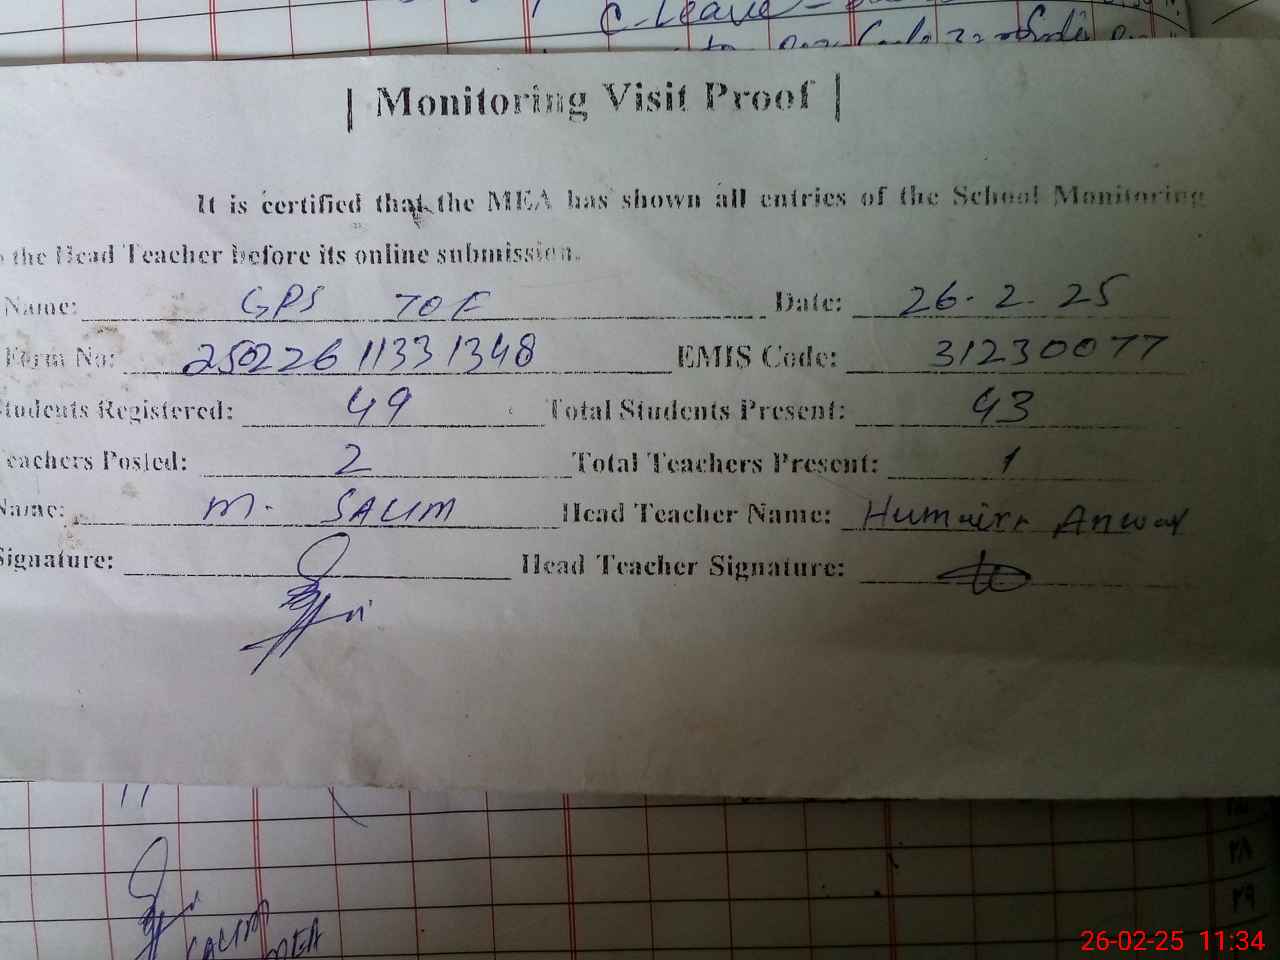 C-Leave
to
| Monitoring Visit Proof |
It is certified that the MEA has shown all entries of the School Monitoring
the Head Teacher before its online submission.
Name: GPS TOE Date: 26.2.25
Form No: 25022611331348 EMIS Code: 31230077
Students Registered: 49 Total Students Present: 43
eachers Posted: 2 Total Teachers Present: 1
Name: M. SALIM Head Teacher Name: Humaira Anwar
Signature: Head Teacher Signature:
11
۲۸
۲۹
SALIM MEA
26-02-25 11:34